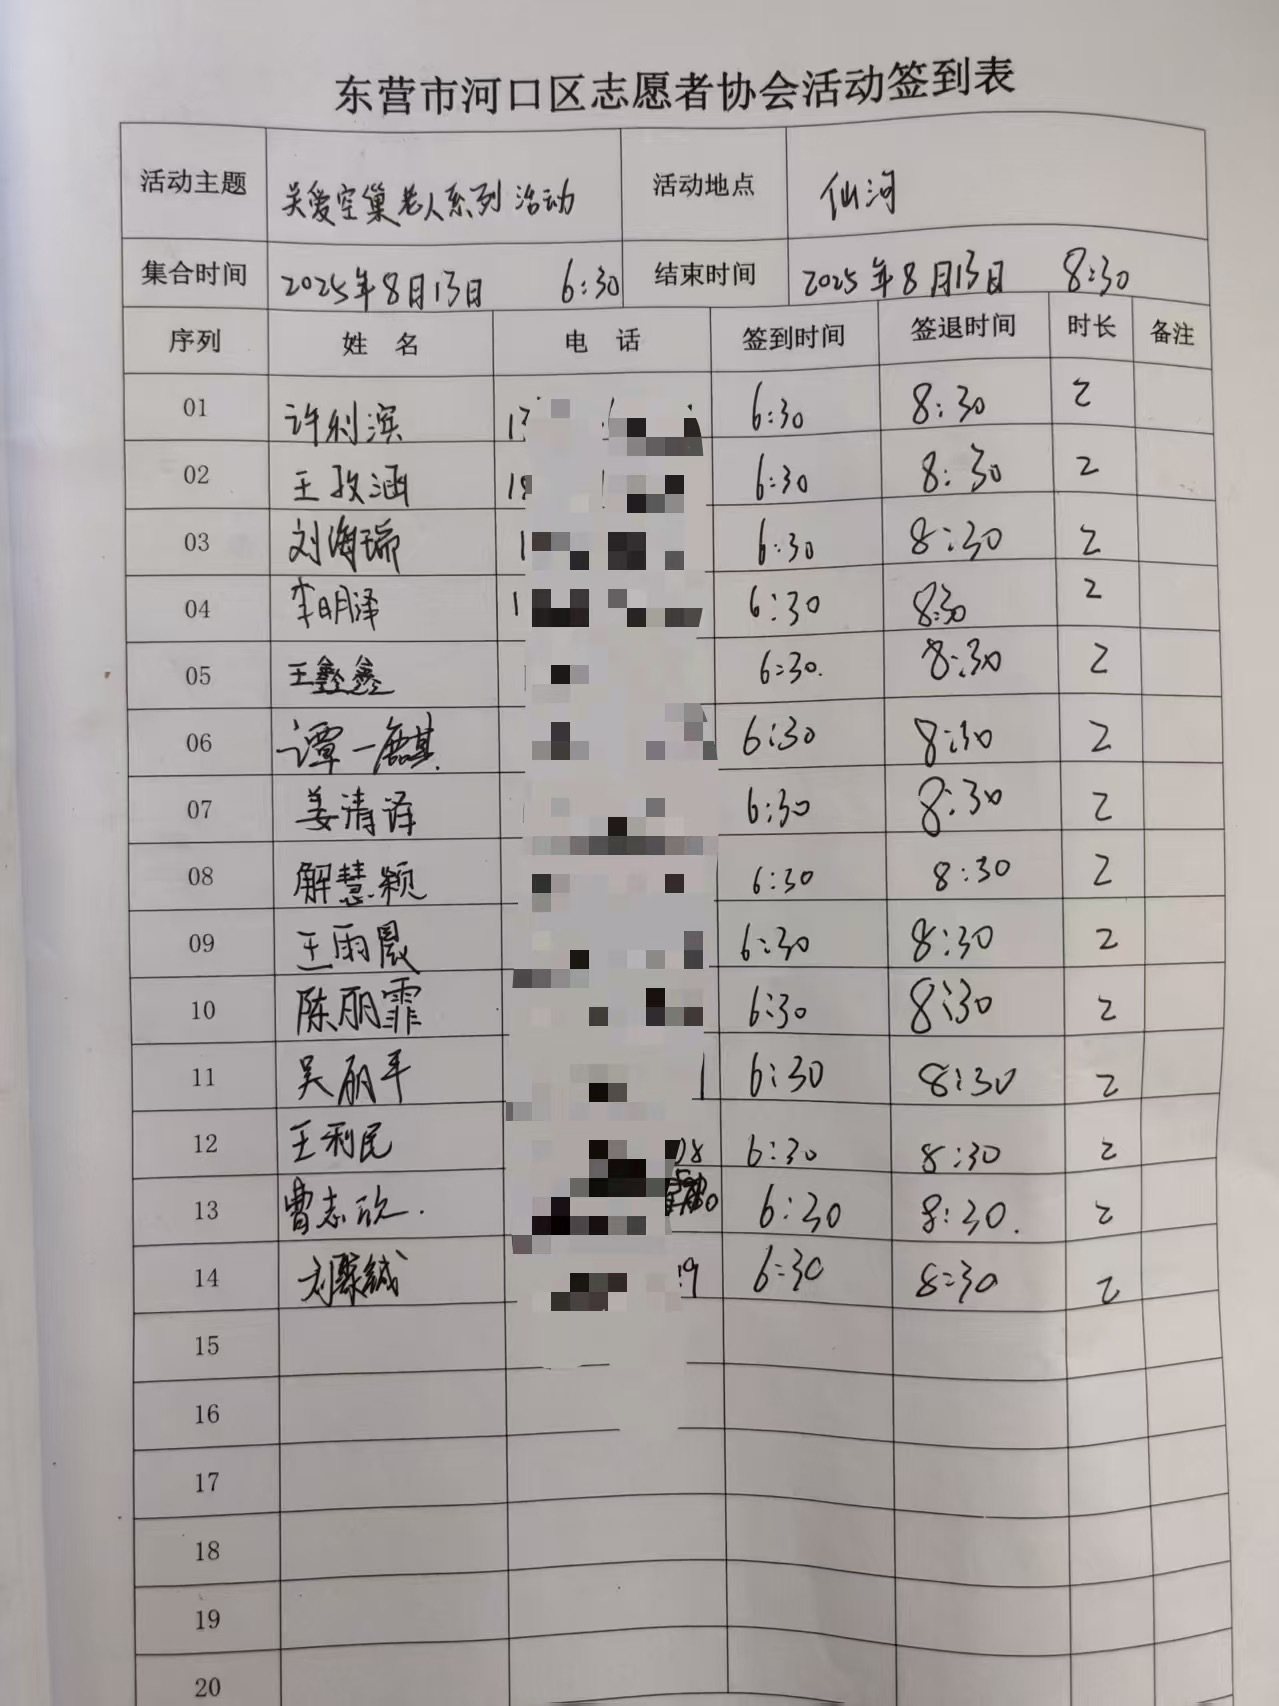 东营市河口区志愿者协会活动签到表
活动主题 关爱空巢老人系列活动 活动地点 仙河
集合时间 2025年8月13日 6:30 结束时间 2025年8月13日 8:30
序列 姓 名 电 话 签到时间 签退时间 时长 备注
01 许利滨 6:30 8:30 2
02 王孜涵 18 6:30 8:30 2
03 刘海瑞 1 6:30 8:30 2
04 李明泽 1 6:30 8:30 2
05 王鑫鑫 6:30. 8:30 2
06 谭一麒 6:30 8:30 2
07 姜清译 6:30 8:30 2
08 解慧颖 6:30 8:30 2
09 王雨晨 6:30 8:30 2
10 陈丽霏 6:30 8:30 2
11 吴丽平 1 6:30 8:30 2
12 王利民 08 6:30 8:30 2
13 曹志欣. 6:30 8:30. 2
14 刘 9 6:30 8:30 2
15
16
17
18
19
20